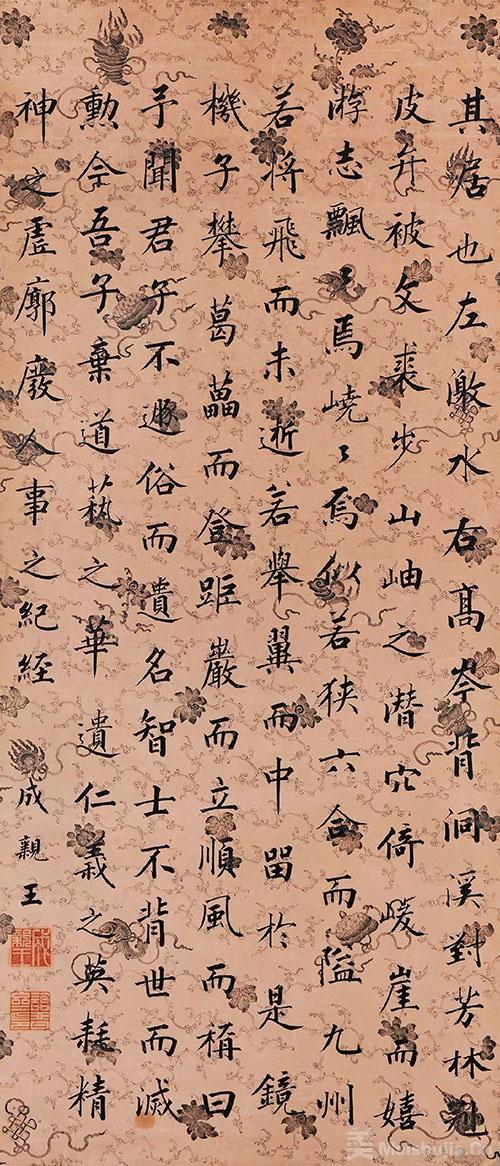 其居也左激水右高岑背洞溪對芳林冠
皮弁被文裘步山岫之潛穴倚峻崖而嬉
游志飄〻焉嶢〻焉似若狹六合而隘九州
若將飛而未逝若舉翼而中留於是鏡
機子攀葛藟而登距巖而立順風而稱曰
予聞君子不遯俗而遺名智士不背世而滅
勳今吾子棄道藝之華遺仁義之英耗精
神之虛廓廢人事之紀經
成親王
Meishujia.Cn